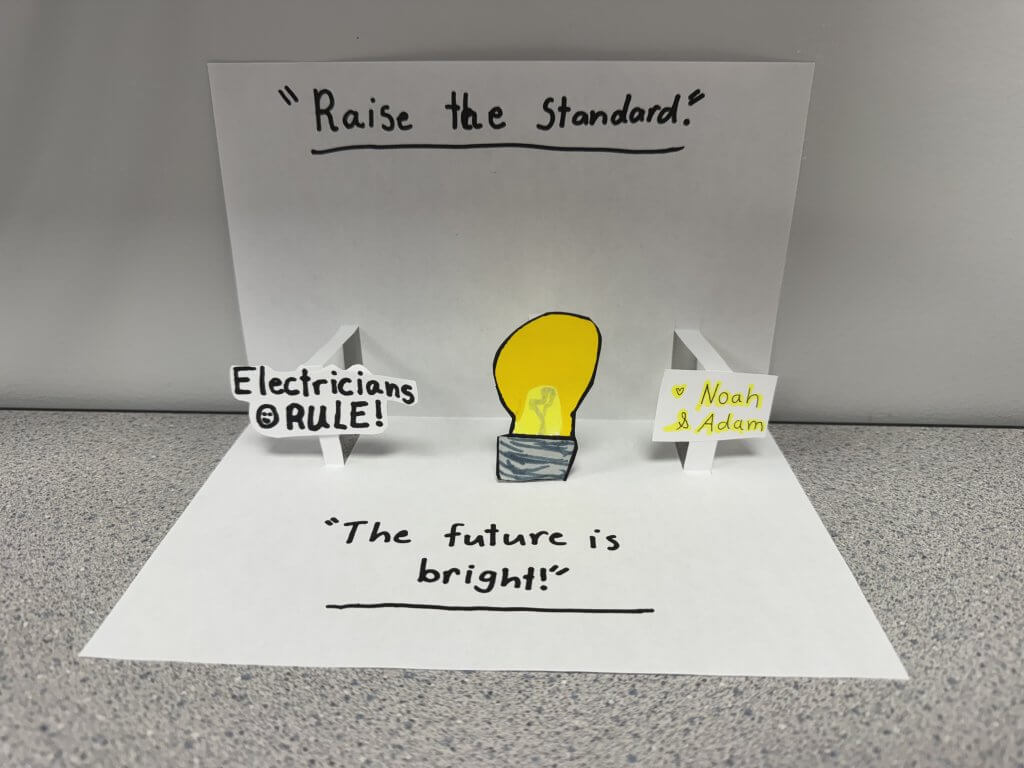 "Raise the Standard."
Electricians
☺RULE!
♡ Noah
& Adam
"The future is
bright!"